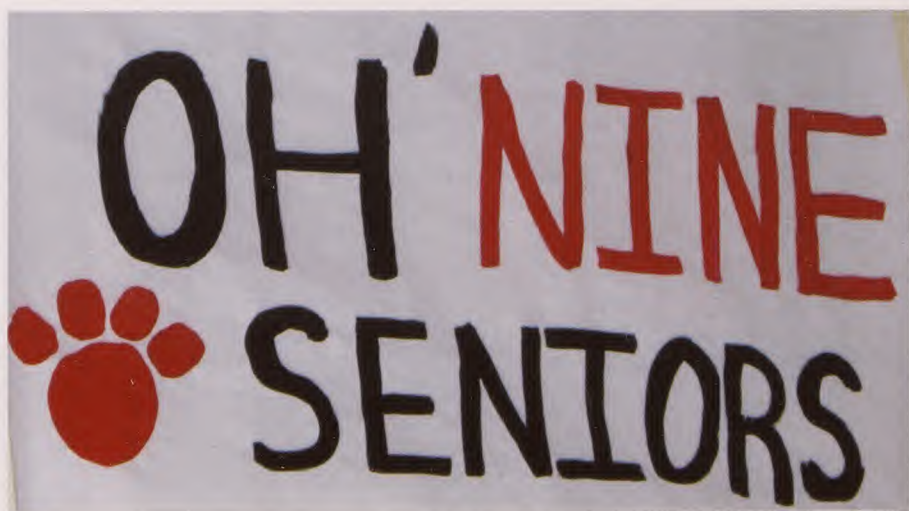 OH' NINE
SENIORS